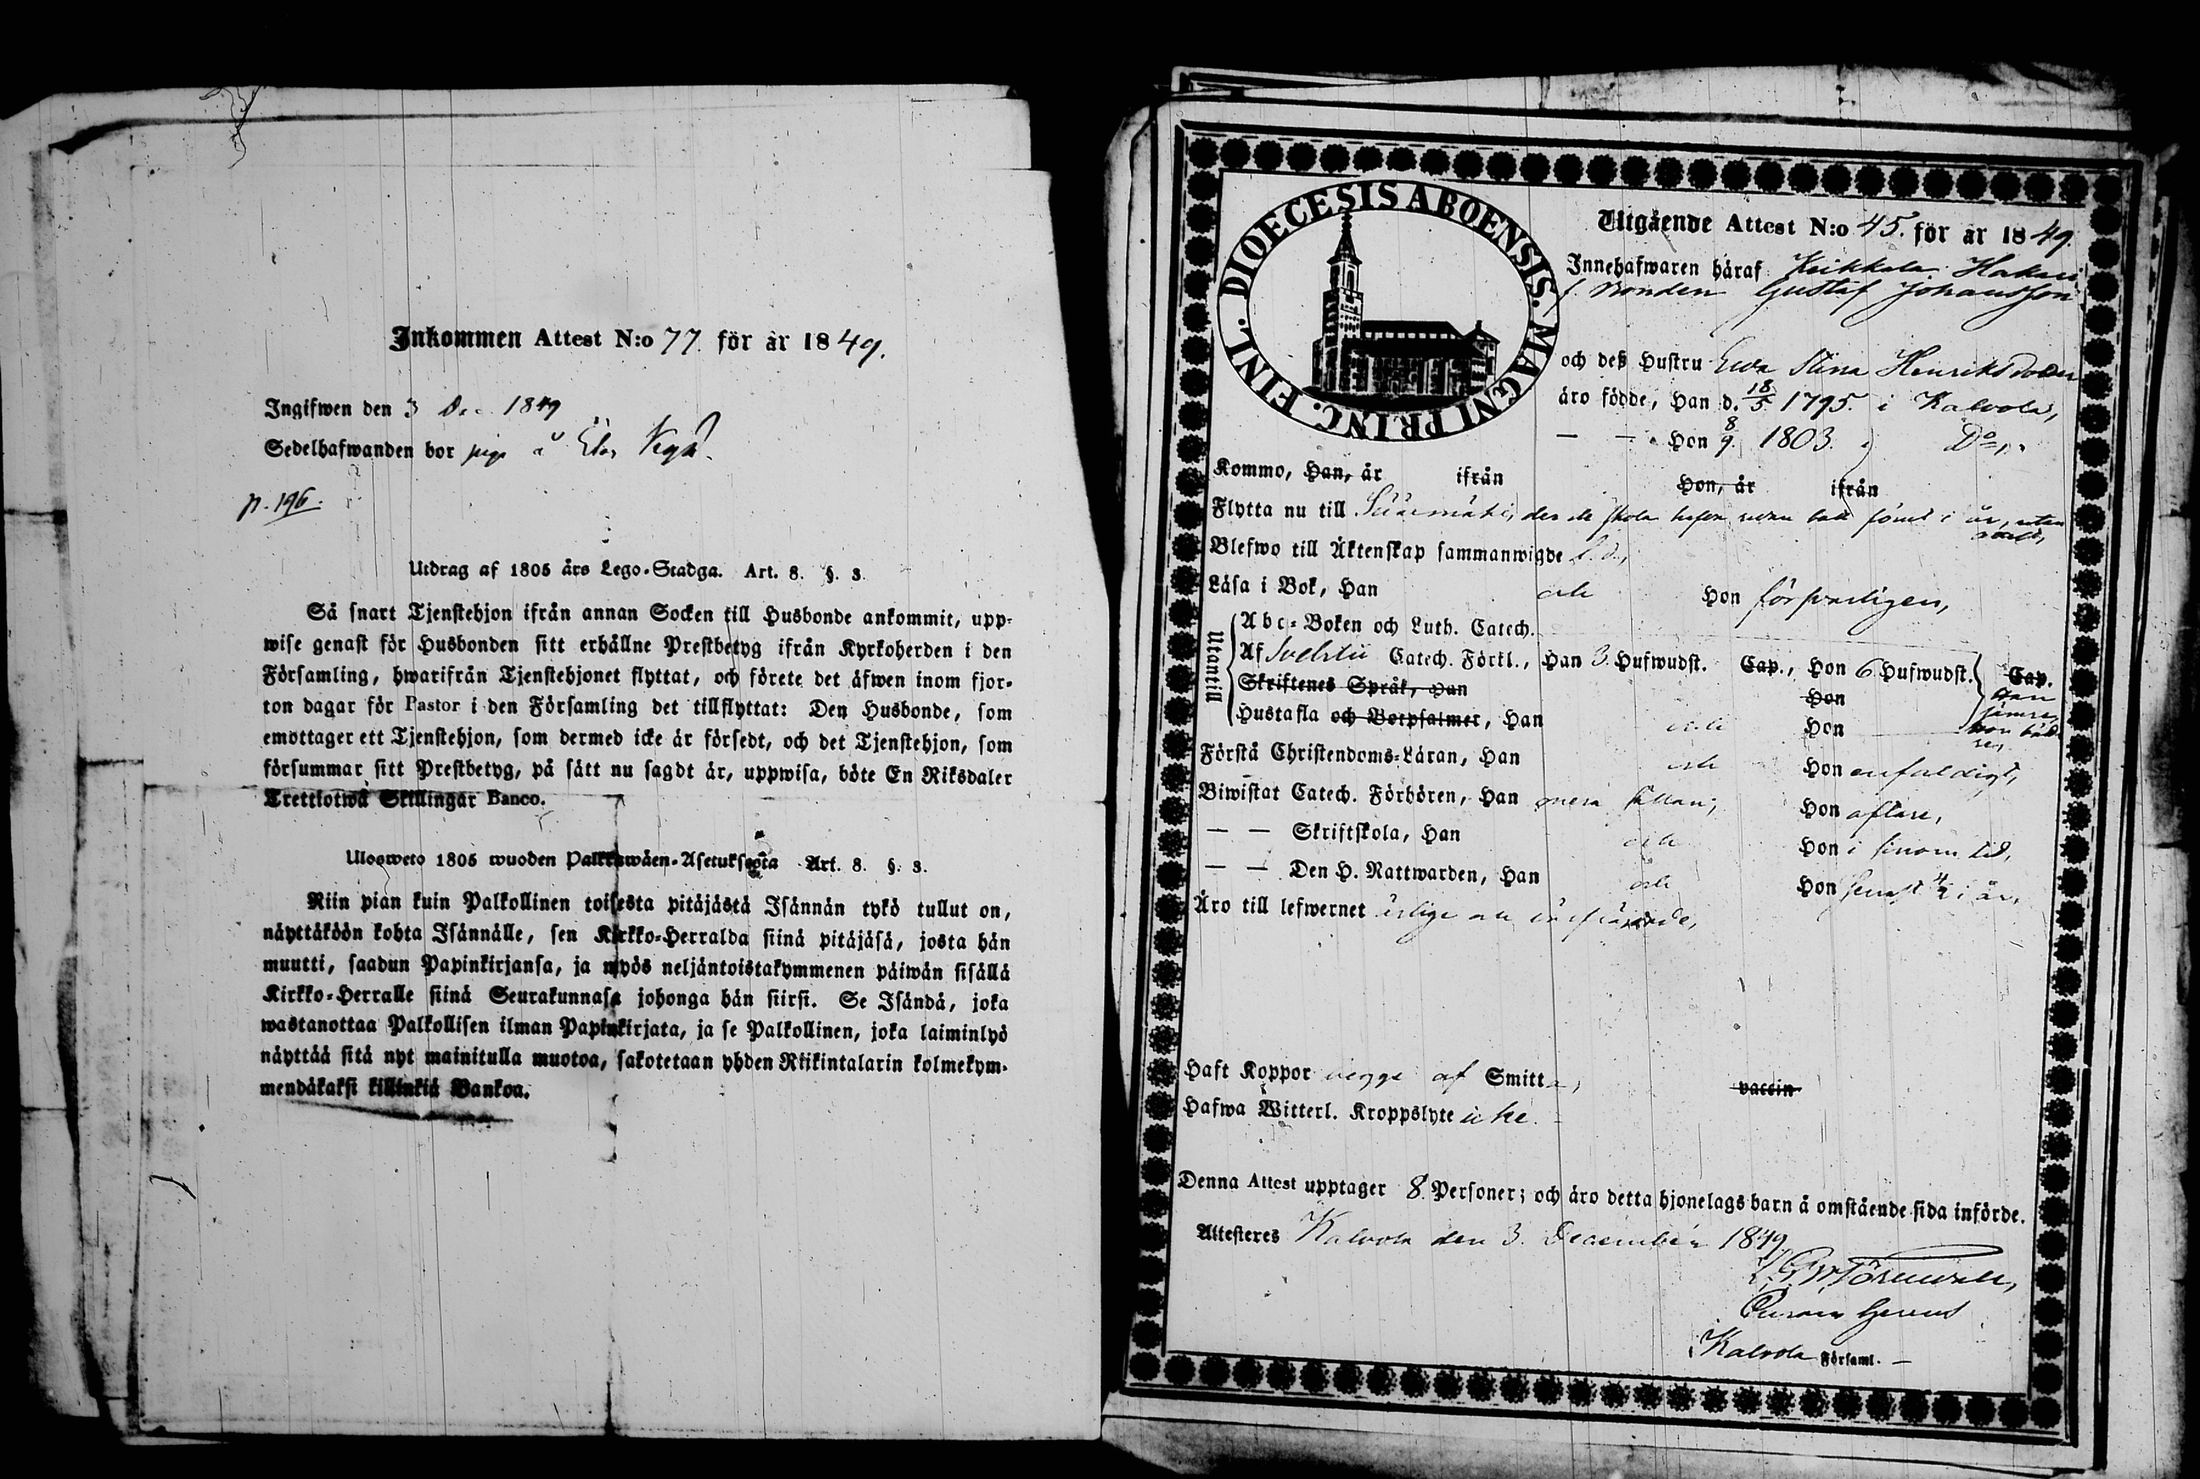 Inkommen Attest N:o 77. för år 1849.
Ingifwen den 3 Dec. 1849
Sedelhafwanden bor
p. 196.
Utdrag af 1805 års Lego-Stadga. Art. 8. §. 3.
Så snart Tjenstehjon ifrån annan Socken till Husbonde ankommit, upp-
wise genast för Husbonden sitt erhållne Prestbetyg ifrån Kyrkoherden i den
Församling, hwarifrån Tjenstehjonet flyttat, och förete det äfwen inom fjor-
ton dagar för Pastor i den Församling det tillflyttat: Den Husbonde, som
emottager ett Tjenstehjon, som dermed icke är försedt, och det Tjenstehjon, som
försummar sitt Prestbetyg, på sätt nu sagdt är, uppwisa, böte En Riksdaler
Trettiotwå Skillingar Banco.
Ulosweto 1805 wuoden Palkkawäen-Asetuksesta Art. 8. §. 3.
Niin pian kuin Palkollinen toisesta pitäjästä Isännän tykö tullut on,
näyttäköön kohta Isännälle, sen Kirkko-Herralda siinä pitäjäsä, josta hän
muutti, saadun Papinkirjansa, ja myös neljäntoistakymmenen päiwän sisällä
Kirkko-Herralle siinä Seurakunnasa johonga hän siirsi. Se Isändä, joka
wastanottaa Palkollisen ilman Papinkirjata, ja se Palkollinen, joka laiminlyö
näyttää sitä nyt mainitulla muotoa, sakotetaan yhden Riikintalarin kolmekym-
mendäkaksi killinkiä Bankoa.
DIOECESIS ABOENSIS. MAGNI PRINC. FINL.
Utgående Attest N:o 45. för år 1849
Innehafwaren häraf Keikkala Hakari
f. Bonden Gustaf Johansson
och deß Hustru Ewa Stina Henriksdotter
äro födde, Han d. 18/5 1795. i Kalvola,
— — Hon 8/9. 1803. i Do,
Kommo, Han, år ifrån Hon, år ifrån
Flytta nu till der de skola i år,
Blefwo till Äktenskap sammanwigde
Läsa i Bok, Han och Hon förswarligen,
Utantill
Abc-Boken och Luth. Catech.
Af Svebelii Catech. Förkl., Han 3. Hufwudst. Cap., Hon 6 Hufwudst. Cap.
Skriftenes Språk, Han Hon
Hustafla och Botpsalmer, Han och Hon
Förstå Christendoms-Läran, Han och Hon enfaldigt,
Biwistat Catech. Förhören, Han mera sällan, Hon oftare,
— — Skriftskola, Han och Hon i sinom tid,
— — Den H. Nattwarden, Han och Hon senast i år,
Äro till lefwernet ärlige och
Haft Koppor begge af Smitta, vaccin
Hafwa Witterl. Kroppslyte icke. —
Denna Attest upptager 8. Personer; och äro detta hjonelags barn å omstående sida införde.
Attesteres Kalvola den 3. December 1849
Kalvola Församl. —